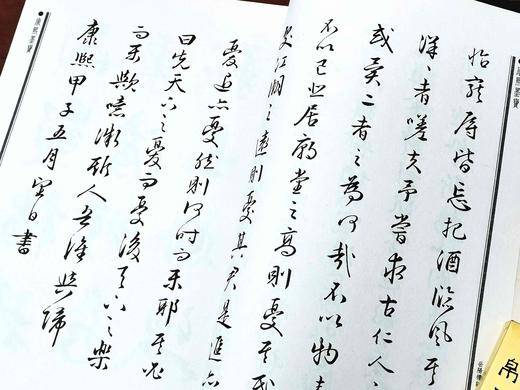 怡寵辱皆忘把酒臨風其
洋〻者嗟夫予嘗求古仁人
或異二者之為何哉不以物
不以己悲居廟堂之高則憂其民
處江湖之遠則憂其君是進亦
憂退亦憂然則何時而樂耶其必
曰先天下之憂而憂後天下之樂
而樂歟噫微斯人吾誰與歸
康熙甲子五月望日書
康熙墨寶
康熙墨寶
岳陽樓
帛